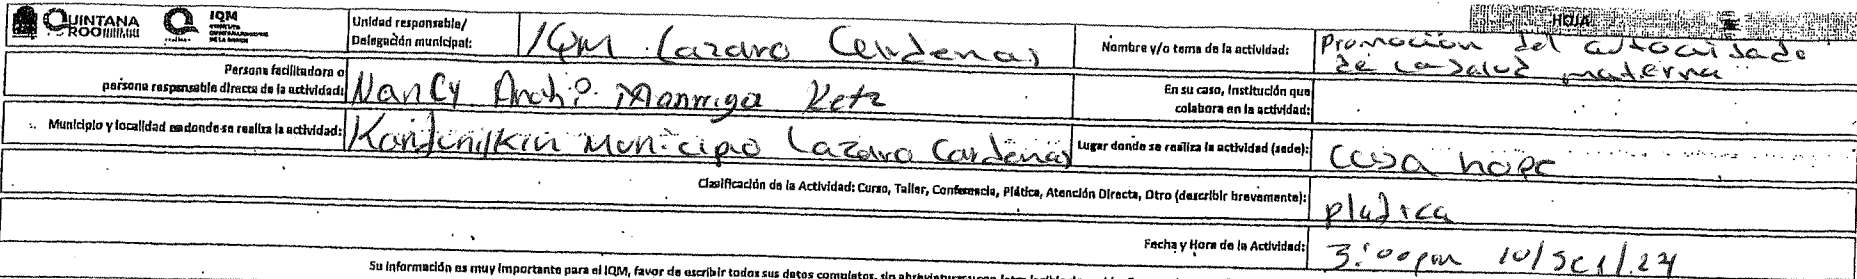 QUINTANA ROO
IQM
INSTITUTO QUINTANARROENSE DE LA MUJER
HOJA
Unidad responsable/ Delegación municipal: IQM Lazaro Cardenas
Nombre y/o tema de la actividad: Promoción del autocuidado de la salud materna
Persona facilitadora o persona responsable directa de la actividad: Nancy
En su caso, institución que colabora en la actividad:
Municipio y localidad en donde se realiza la actividad: Kantunilkin Municipio Lazaro Cardenas
Lugar donde se realiza la actividad (sede): casa hope
Clasificación de la Actividad: Curso, Taller, Conferencia, Plática, Atención Directa, Otro (describir brevemente): platica
Fecha y Hora de la Actividad: 3:00pm 10/
Su información es muy importante para el IQM, favor de escribir todos sus datos completos, sin abreviaturas